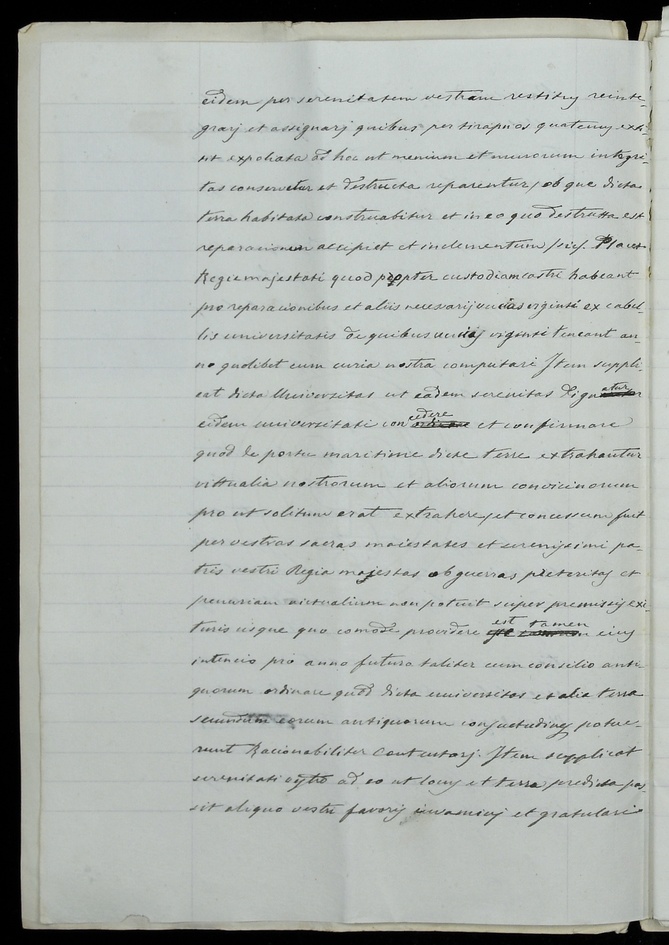 eidem per serenitatem vestram restituj reinte-
graj et assignarj quibus per tirapnos quatenus exti-
tit expoliata ad hoc ut menium et murorum integri-
tas conservetur et destructa reparentur, ob que dicta
terra habitata construabitur et in eo quo destrutta est
reparacionem accipiet et inclementum /sic/. Placet
Regie majestati quod propter custodiam castri habeant
pro reparacionibus et aliis necesarijs viginti ex cabel-
lis universitatis de quibus viginti teneant an-
no quolibet cum curia nostra computari Item suppli-
cat dicta Universitas ut eadem serenitas dignatur
eidem universitati concedere et confirmare
quod de portu maritime dicte terre extrahantur
vittualia nostrorum et aliorum convicinorum
pro ut solitum erat extrahere, et concessum fuit
per vestras sacras maiestates et serenissimi pa-
tris vestri Regia majestas ob guerras preteritas et
penuriam victualium non potuit super premissis exi-
turis usque quo comode providere est tamen eius
intencio pro anno futuro taliter cum consilio anti-
quorum ordinare quod dicta universitas et alia terra
secundum eorum antiquorum consuetudines potue-
runt Racionabiliter contentarj. Item supplicat
serenitati vestre ad eo ut locus et terra predicta pos
sit aliquo vestri favoris et gratulari